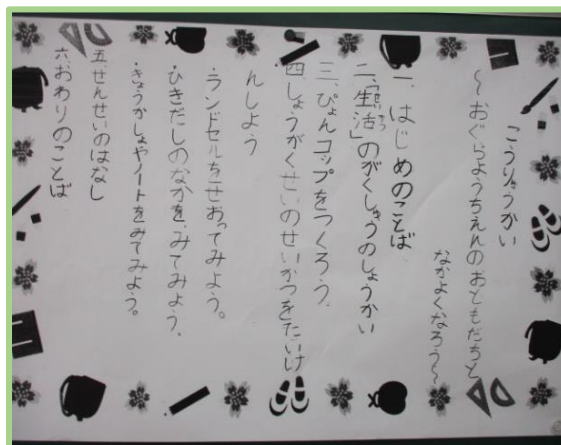 こうりゅうかい
～おぐらようちえんのおともだちと
なかよくなろう～
一、はじめのことば
二、「生活」のがくしゅうのしょうかい
せいかつ
三、ぴょんコップをつくろう。
四、しょうがくせいのせいかつをたいけ
んしよう
・ランドセルをせおってみよう。
・ひきだしのなかを、みてみよう。
・きょうかしょやノートをみてみよう。
五、せんせいのはなし
六、おわりのことば